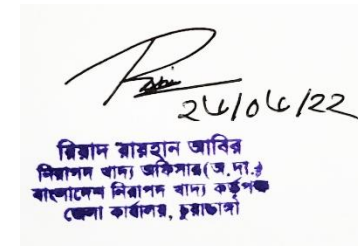 ২৫/০৫/22
রিয়াদ রায়হান আবির
নিরাপদ খাদ্য অফিসার(অ.দা.)
বাংলাদেশ নিরাপদ খাদ্য কর্তৃপক্ষ
জেলা কার্যালয়, চুয়াডাঙ্গা